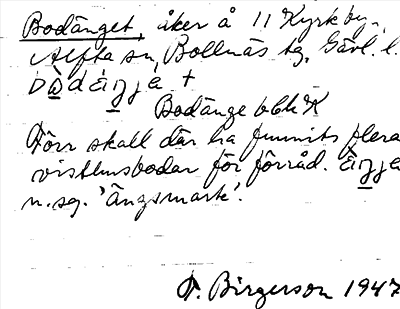 Bodänget, åker å 11 Kyrkby,
Alfta sn, Bollnäs tg, Gävl. l.
Bodänge
Förr skall där ha funnits flera
visthusbodar för förråd.
n.sg. 'Ängsmark'.
T. Birgerson 1947